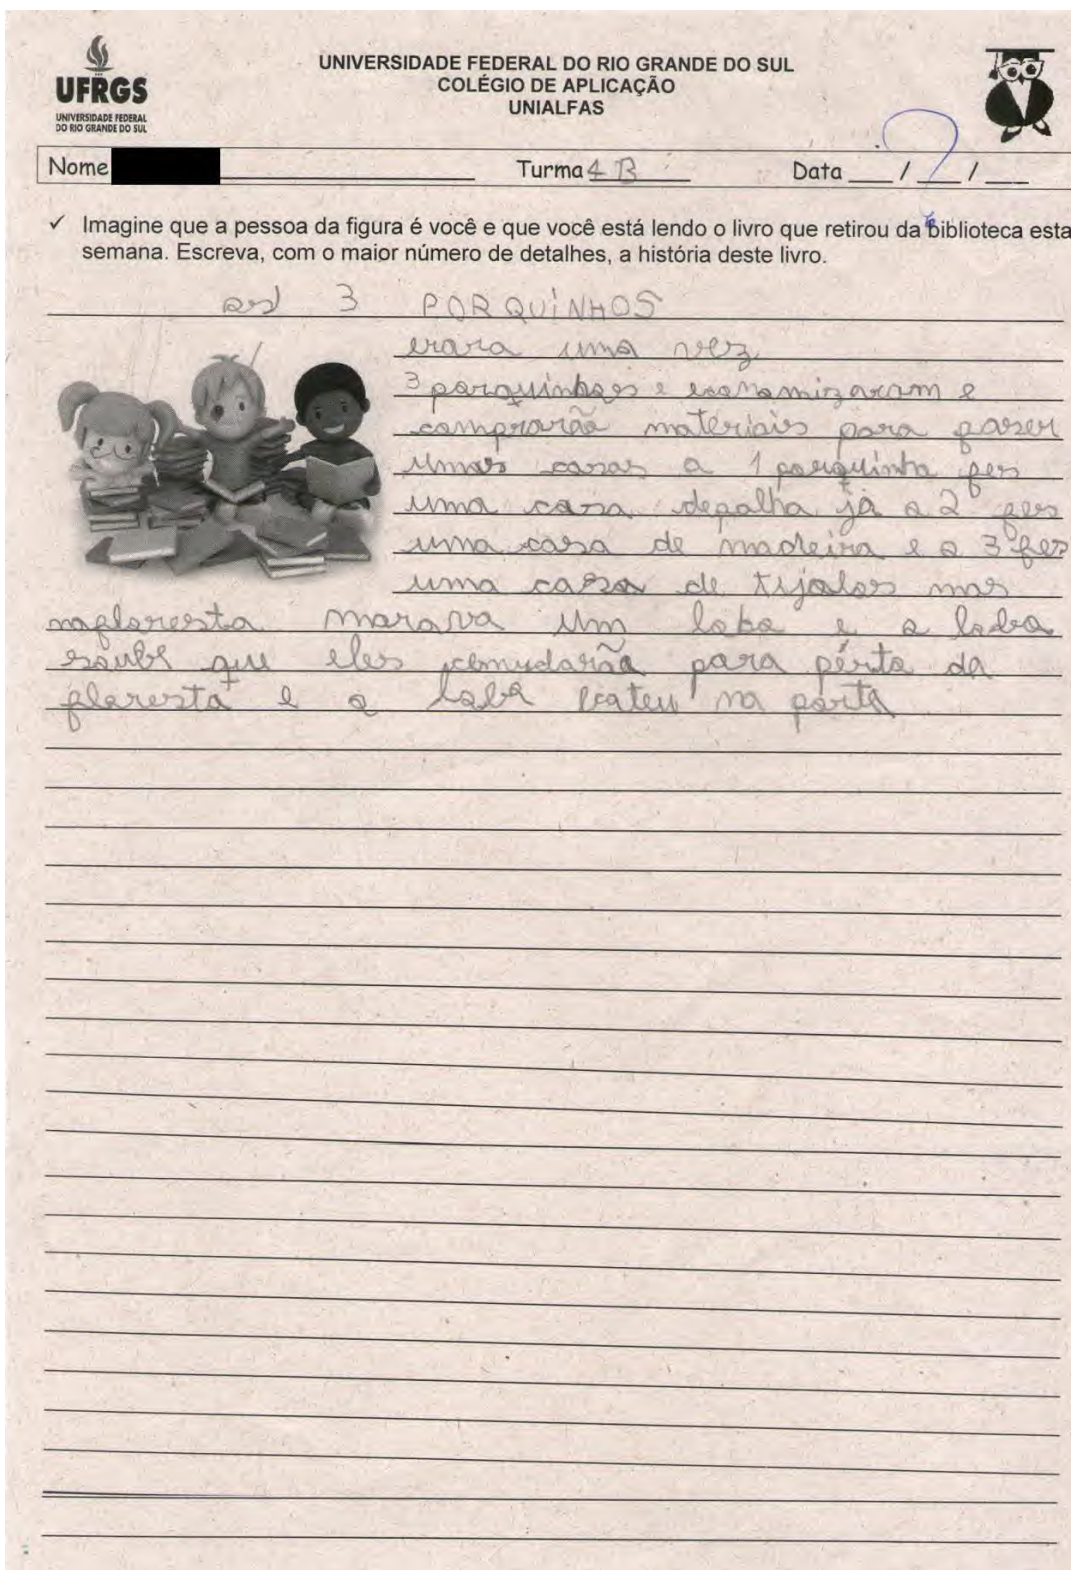 UFRGS
UNIVERSIDADE FEDERAL
DO RIO GRANDE DO SUL
UNIVERSIDADE FEDERAL DO RIO GRANDE DO SUL
COLÉGIO DE APLICAÇÃO
UNIALFAS
Nome Turma 4 B Data / ? /
✓ Imagine que a pessoa da figura é você e que você está lendo o livro que retirou da biblioteca esta
semana. Escreva, com o maior número de detalhes, a história deste livro.
os 3 PORQUINHOS
erara uma vez
3 porquinhos e economizaram e
comprarão materiais para faser
umas casas o 1 porquinho fes
uma casa depalha já o 2 fes
uma casa de madeira e o 3º fes
uma casa de tijolos mas
nafloresta morava um lobo e o lobo
soube que eles semudarão para pérto da
floresta e o lobo bateu na porta